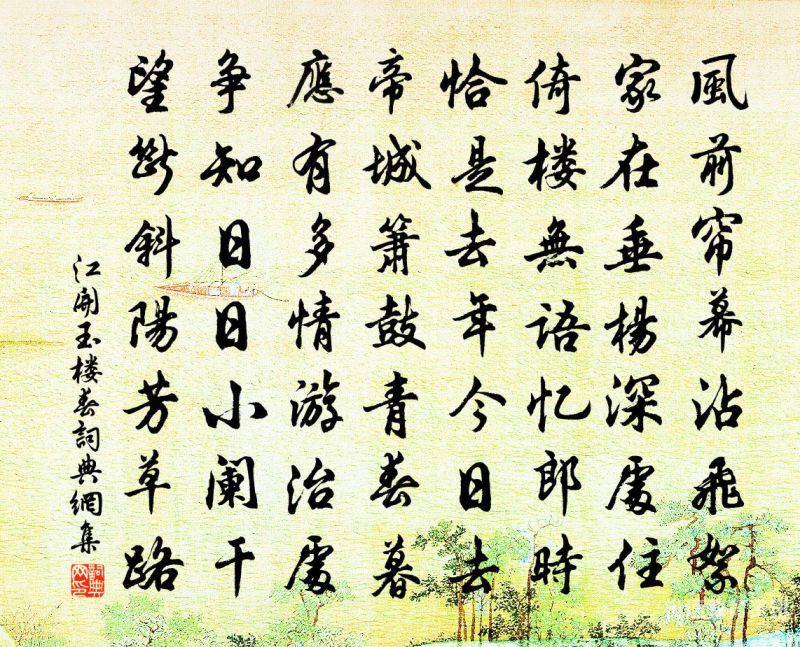 風前帘幕沾飛絮
家在垂楊深處住
倚楼無語忆郎時
恰是去年今日去
帝城簫鼓青春暮
應有多情游治處
争知日日小阑干
望断斜陽芳草路
江開玉楼春詞典網集